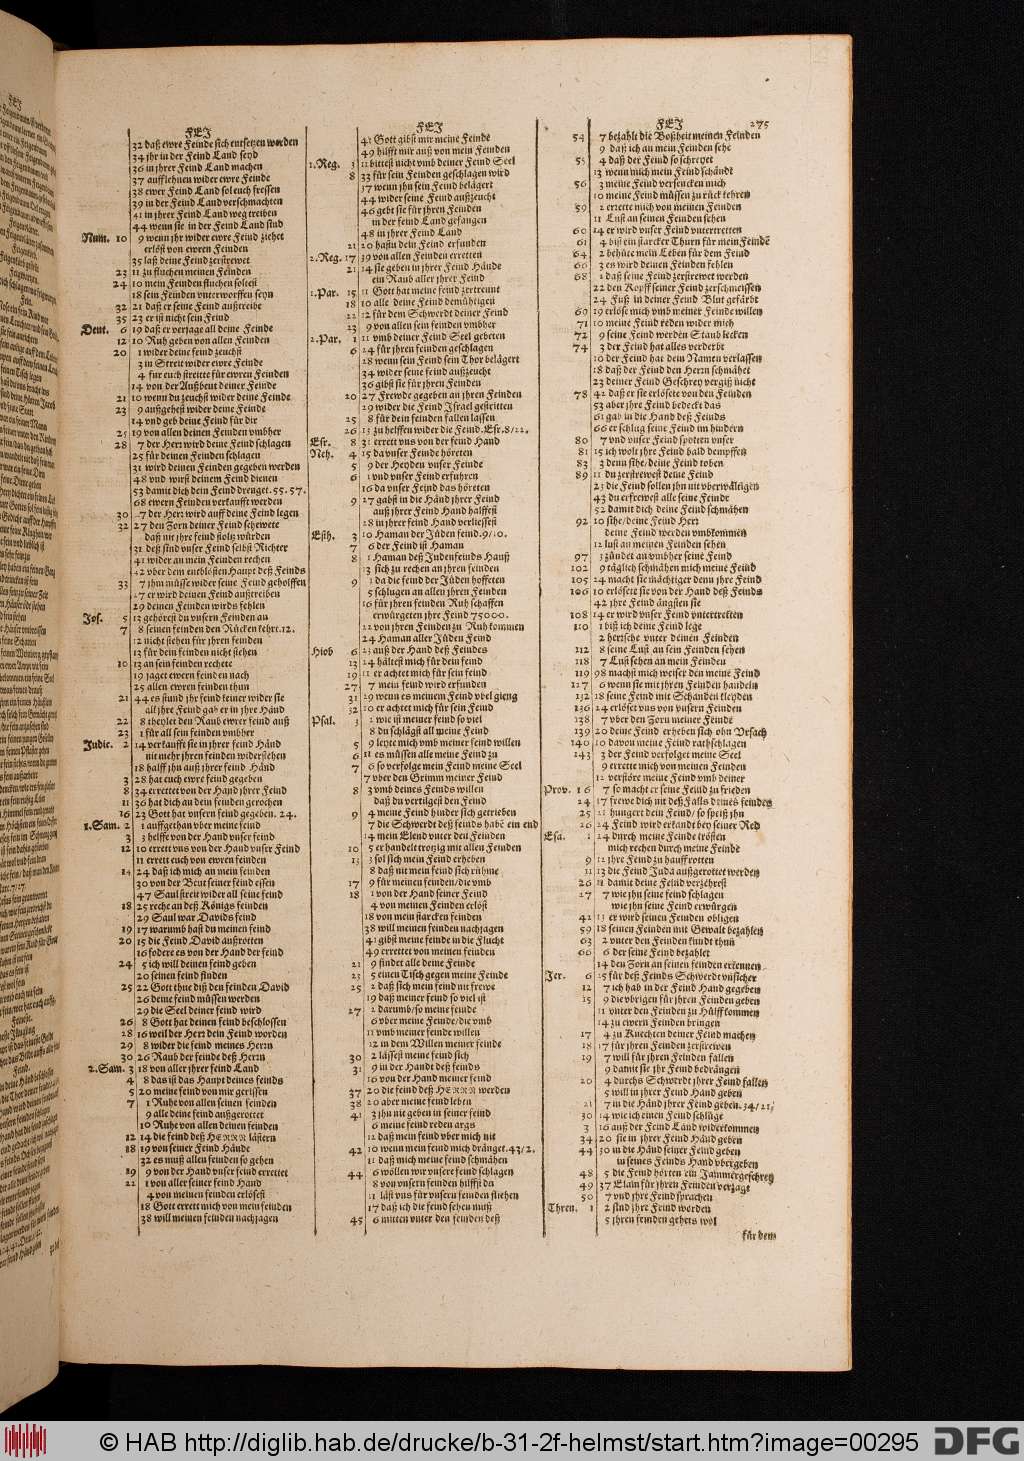 FEJ
32 daß ewre Feinde sich entsetzen werden
34 jhr in der Feind Land seyd
36 in jhrer Feind Land machen
37 aufflehnen wider ewre Feinde
38 ewer Feind Land sol euch fressen
39 in der Feind Land verschmachten
41 in jhrer Feind Land weg treiben
44 wenn sie in der Feind Land sind
Num. 10 9 wenn jhr wider ewre Feind ziehet
erlöst von ewren Feinden
35 laß deine Feind zerstrewet
23 11 zu fluchen meinen Feinden
24 10 mein Feinden fluchen soltest
18 sein Feinden vnterworffen seyn
32 21 daß er seine Feind außtreibe
35 23 er ist nicht sein Feind
Deut. 6 19 daß er verjage all deine Feinde
12 10 Ruh geben von allen Feinden
20 1 wider deine feind zeuchst
3 in Streit wider ewre Feinde
4 für euch streitte für ewren Feinden
14 von der Außbeut deiner Feinde
21 10 wenn du zeuchst wider deine Feinde
23 9 außgehest wider deine Feinde
14 vnd geb deine Feind für dir
25 19 von allen deinen Feinden vmbher
28 7 der Herr wird deine Feind schlagen
25 für deinen Feinden schlagen
31 wird deinen Feinden gegeben werden
48 vnd wirst deinem Feind dienen
53 damit dich dein Feind drenget. 55. 57.
68 ewern Feinden verkaufft werden
30 7 der Herr wird auff deine Feind legen
32 27 den Zorn deiner Feind schewete
daß nit jhre feind stoltz würden
31 deß sind vnser Feind selbst Richter
41 wider an mein Feinden rechen
42 vber dem entblösten Haupt deß Feinds
33 7 jhm müsse wider seine Feind geholffen
27 er wird deinen Feind außtreiben
29 deinen Feinden wirds fehlen
Jos. 5 13 gehörest du vnsern Feinden an
7 8 seinen feinden den Rücken kehrt. 12.
12 nicht stehen für jhren feinden
13 für dein feinden nicht stehen
10 13 an sein feinden rechete
19 jaget ewern feinden nach
25 allen ewren feinden thun
21 44 es stund jhr feind keiner wider sie
all jhre Feind gab er in jhre Händ
22 8 theylet den Raub ewrer feind auß
23 1 für all sein feinden vmbher
Judic. 2 14 verkaufft sie in jhrer feind Händ
nit mehr jhren feinden widerstehen
18 halff jhn auß jhrer feind Händ
3 28 hat euch ewre feind gegeben
8 34 errettet von der Hand jhrer Feind
11 36 hat dich an dein feinden gerochen
16 23 Gott hat vnsern feind gegeben. 24.
1. Sam. 2 1 auffgethan vber meine feind
3 3 helffe von der Hand vnser feind
12 10 errett vns von der Hand vnser Feind
11 errett euch von ewren feinden
14 24 daß ich mich an mein feinden
30 von der Beut seiner feind essen
47 Saul streit wider all seine feind
18 25 reche an deß Königs feinden
29 Saul war Davids feind
19 17 warumb hast du meinen feind
20 15 die Feind David außrotten
16 fodere es von der Hand der feind
24 5 ich will deinen feind geben
20 seinen feind finden
25 22 Gott thue diß den feinden David
26 deine feind müssen werden
29 die Seel deiner feind wird
26 8 Gott hat deinen feind beschlossen
28 16 weil der Herr dein Feind worden
29 8 wider die feind meines Herrn
30 26 Raub der feinde deß Herrn
2. Sam. 3 18 von aller jhrer feind Land
4 8 das ist das Haupt deines feinds
5 20 meine feind von mir gerissen
7 1 Ruhe von allen seinen feinden
9 alle deine feind außgerottet
10 Ruhe von allen deinen feinden
12 14 die feind deß HERRN lästern
18 19 von seiner Feind Hände
32 es muß allen feinden so gehen
19 9 von der Hand vnser feind errettet
22 1 von aller seiner feind Hand
4 von meinen feinden erlösest
18 Gott errett mich von mein feinden
38 will meinen feinden nachjagen
FEJ
41 Gott gibst mir meine Feinde
49 hilfft mir auß von mein Feinden
1. Reg. 3 11 bittest nicht vmb deiner Feind Seel
8 33 für sein Feinden geschlagen wird
37 wenn jhn sein Feind belägert
44 wider seine Feind außzeucht
46 gebt sie für jhren Feinden
in der feind Land gefangen
48 in jhrer Feind Land
21 20 hastu dein Feind erfunden
2. Reg. 17 39 von allen Feinden erretten
21 14 sie geben in jhrer Feind Hände
ein Raub aller jhrer Feind
1. Par. 15 11 Gott hat meine feind zertrennt
18 10 alle deine Feind demühtigen
22 12 für dem Schwerdt deiner Feind
23 9 von allen sein feinden vmbher
2. Par. 1 11 vmb deiner Feind Seel gebeten
6 24 für jhren feinden geschlagen
28 wenn sein Feind sein Thor belägert
34 wider seine feind außzeucht
36 gibst sie für jhren Feinden
20 27 Frewde gegeben an jhren Feinden
29 wider die Feind Israel gestritten
25 8 für dein feinden fallen lassen
26 13 zu helffen wider die Feind. Esr. 8/22.
Esr. 8 31 errett vns von der feind Hand
Neh. 4 15 da vnser Feinde höreten
5 9 der Heyden vnser Feinde
6 1 vnd vnser Feind erfuhren
16 da vnser Feind das höreten
9 27 gabst in die Händ jhrer Feind
auß jhrer Feind Hand halffest
28 in jhrer feind Hand verliessest
Esth. 3 10 Haman der Jüden feind. 9/10.
7 6 der Feind ist Haman
8 1 Haman deß Judenfeinds Hauß
13 sich zu rechen an jhren feinden
9 1 da die feind der Jüden hoffeten
5 schlugen an allen jhren Feinden
16 für jhren feinden Ruh schaffen
erwürgeten jhre Feind 75000.
22 von jhren Feinden zu Ruh kommen
24 Haman aller Jüden Feind
Hiob 6 23 auß der Hand deß Feindes
13 24 hältest mich für dein feind
19 11 er achtet mich für sein feind
27 7 mein feind wird erfunden
31 29 wenn es meinem Feind vbel gieng
32 10 er achtet mich für sein Feind
Psal. 3 2 wie ist meiner feind so viel
8 du schlägst all meine Feind
5 9 leyte mich vmb meiner feind willen
6 11 es müssen alle meine Feind zu
7 6 so verfolge mein Feind meine Seel
7 vber den Grimm meiner Feind
8 3 vmb deines Feinds willen
daß du vertilgest den Feind
9 4 meine Feind hinder sich getrieben
7 die Schwerdt deß feinds habē ein end
14 mein Elend vnter den Feinden
10 5 er handelt trotzig mit allen Feinden
13 3 sol sich mein Feind erheben
8 daß nit mein feind sich rühme
17 9 für meinen feinden/die vmb
18 1 von der Hand seiner Feind
4 von meinen Feinden erlöst
18 von mein starcken feinden
38 will meinen feinden nachjagen
41 gibst meine feinde in die Flucht
49 errettet von meinen feinden
21 9 findet alle deine Feinde
23 5 einen Tisch gegen meine Feinde
25 2 daß sich mein feind nit frewe
19 daß meiner feind so viel ist
27 2 darumb/so meine feinde
6 vber meine Feinde/die vmb
11 vmb meiner feinde willen
12 in dem Willen meiner feinde
30 2 lässest meine feind sich
31 9 in der Hand deß feinds
16 von der Hand meiner feind
37 20 die feind deß HERRN werden
38 20 aber meine feind leben
41 3 jhn nie geben in seiner feind
6 meine feind reden args
12 daß mein feind vber mich nit
42 10 wenn mein feind mich dränget. 43/2.
11 daß mich meine feind schmähen
44 6 wollen wir vnsere feind schlagen
8 von vnsern feinden hilffst du
11 läst vns für vnsern feinden fliehen
17 daß ich die feind sehen muß
45 6 mitten vnter den feinden deß
FEJ 275
54 7 bezahlt die Boßheit meinen Feinden
9 daß ich an mein Feinden sehe
55 4 daß der Feind so schreyet
13 wenn mich mein Feind schändt
56 3 meine Feind versencken mich
10 meine Feind müssen zu rück kehren
59 2 errette mich von meinen Feinden
11 Lust an seinen Feinden sehen
60 14 er wird vnser Feind vntertretten
61 4 bist ein starcker Thurn für mein Feindē
64 2 behüte mein Leben für dem Feind
66 3 es wird deinen Feinden fehlen
68 2 daß seine Feind zerstrewet werden
22 den Kopff seiner Feind zerschmeissen
24 Fuß in deiner Feind Blut gefärbt
69 19 erlöse mich vmb meiner Feinde willen
71 10 meine Feind reden wider mich
72 9 seine Feind werden Staub lecken
74 3 der Feind hat alles verderbt
10 der Feind hat dein Namen verlassen
18 daß der Feind den Herrn schmähet
23 deiner Feind Geschrey vergiß nicht
78 42 daß er sie erlösete von den Feinden
53 aber jhre Feind bedeckt das
61 gab in die Hand deß Feinds
66 er schlug seine Feind im hindern
80 7 vnd vnser Feind spotten vnser
81 15 ich wolt jhre Feind bald dempffen
83 3 denn sihe/deine Feind toben
89 11 du zerstrewest deine Feind
23 die Feind sollen jhn nit vberwältigen
43 du erfrewest alle seine Feinde
52 damit dich deine Feind schmähen
92 10 sihe/deine Feind Herr
deine Feind werden vmbkommen
12 lust an meinen Feinden sehen
97 3 zündet an vmbher seine Feind
102 9 täglich schmähen mich meine Feind
105 24 macht sie mächtiger denn jhre Feind
106 10 erlöset sie von der Hand deß Feinds
42 jhre Feind ängsten sie
108 14 er wird vnser Feind vntertretten
110 1 biß ich deine Feind lege
2 hersche vnter deinen Feinden
112 8 seine Lust an sein Feinden sehen
118 7 Lust sehen an mein Feinden
119 98 machst mich weiser den meine Feind
127 6 wenn sie mit jhren Feinden handeln
132 18 seine Feind mit Schanden kleyden
136 24 erlöset vns von vnsern Feinden
138 7 vber den Zorn meiner Feinde
139 20 deine Feind erheben sich ohn Vrsach
140 10 davon meine Feind rathschlagen
143 3 der Feind verfolget meine Seel
9 errette mich von meinen Feinden
12 verstöre meine Feind vmb deiner
Prov. 16 7 so macht er seine Feind zu frieden
24 17 frewe dich nit deß Falls deines feindes
25 21 hungert dein Feind/ so speiß jhn
26 24 Feind wird erkandt bey seiner Red
Esa. 1 24 durch meine Feinde trösten
mich rechen durch meine Feinde
9 11 jhre Feind zu hauff rotten
11 13 die Feind Juda außgerottet werden
26 11 damit deine Feind verzehrest
27 7 wie jhn seine feind schlagen
wie jhn seine Feind erwürgen
42 13 er wird seinen Feinden obligen
59 18 seinen Feinden mit Gewalt bezahlen
63 2 vnter den Feinden kundt thun
66 6 der seine Feind bezahlet
14 den Zorn an seinen feinden erkennen
Jer. 6 25 für deß Feinds Schwerdt vnsicher
12 7 ich hab in der Feind Hand gegeben
15 9 die vbrigen für jhren Feinden geben
11 vnter den Feinden zu Hülff kommen
14 zu ewern Feinden bringen
17 4 zu Knechten deiner Feind machen
18 17 für jhren Feinden zerstrewen
19 7 will für jhren Feinden fallen
9 damit sie jhr Feind bedrängen
20 4 durchs Schwerdt jhrer Feind fallen
5 will in jhrer Feind Hand geben
21 7 in die Händ jhrer Feind geben. 34/21.
30 14 wie ich einen Feind schlüge
3 16 auß der Feind Land widerkommen
34 20 sie in jhrer Feind Händ geben
44 30 in die Händ seiner Feind geben
in seines Feinds Hand vbergeben
48 5 die Feind hörten ein Jammergeschrey
49 37 Elam für jhren Feinden verzagt
50 7 vnd jhre Feind sprachen
Thren. 1 2 sind jhre Feind worden
5 jhren feinden gehets wol
für dem
© HAB http://diglib.hab.de/drucke/b-31-2f-helmst/start.htm?image=00295
DFG